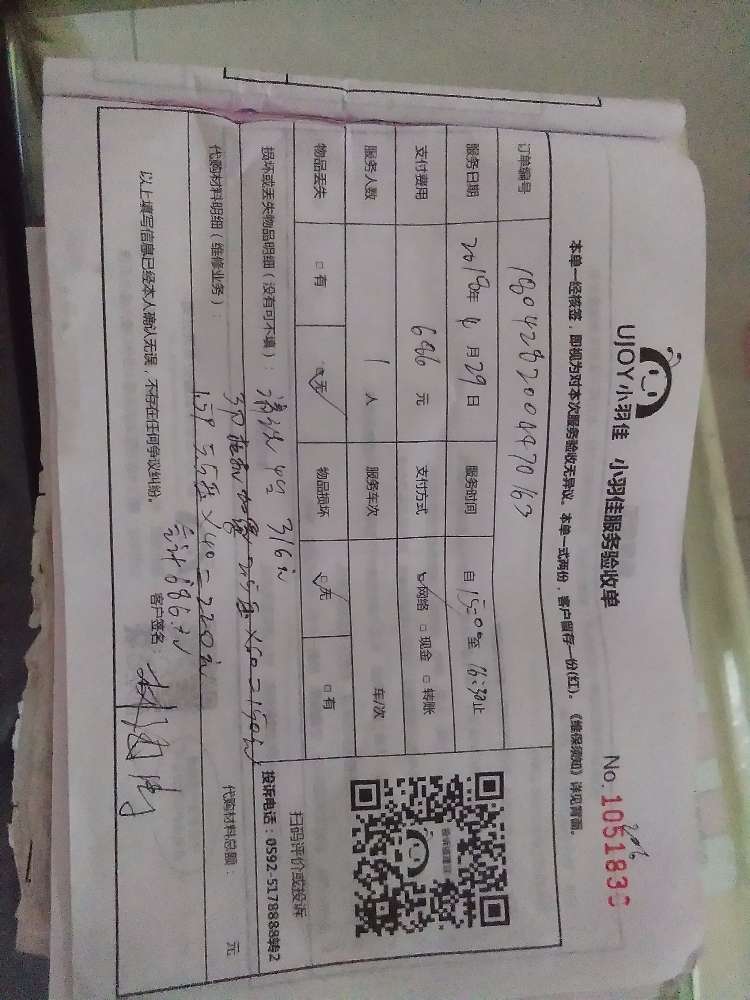 UJOY小羽佳 小羽佳服务验收单
No. 1051836
本单一经核签,即视为对本次服务验收无异议。本单一式两份,客户留存一份(红)。《维保须知》详见背面。
订单编号 1804282000470163
服务日期 2018年4月29日 服务时间 自15:00至16:30止
支付费用 686元 支付方式 ☑网络 □现金 □转账
服务人数 1人 服务车次 车/次
物品丢失 □有 ☑无 物品损坏 ☑无 □有
损坏或丢失物品明细(没有可不填): 清洗4台 316元
代购材料明细(维修业务):
1.5P 5.5压×40=220元
代购材料总额: 元
合计686元
以上填写信息已经本人确认无误,不存在任何争议纠纷。 客户签名:
扫码评价或投诉
投诉电话:0592-5178888转2